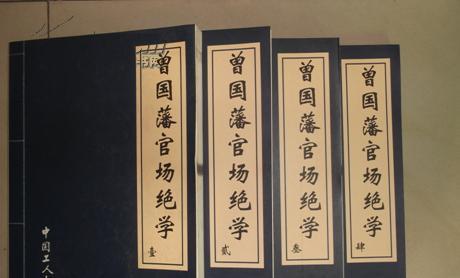 曾国藩官场绝学
壹
中国工人
曾国藩官场绝学
贰
曾国藩官场绝学
叁
曾国藩官场绝学
肆